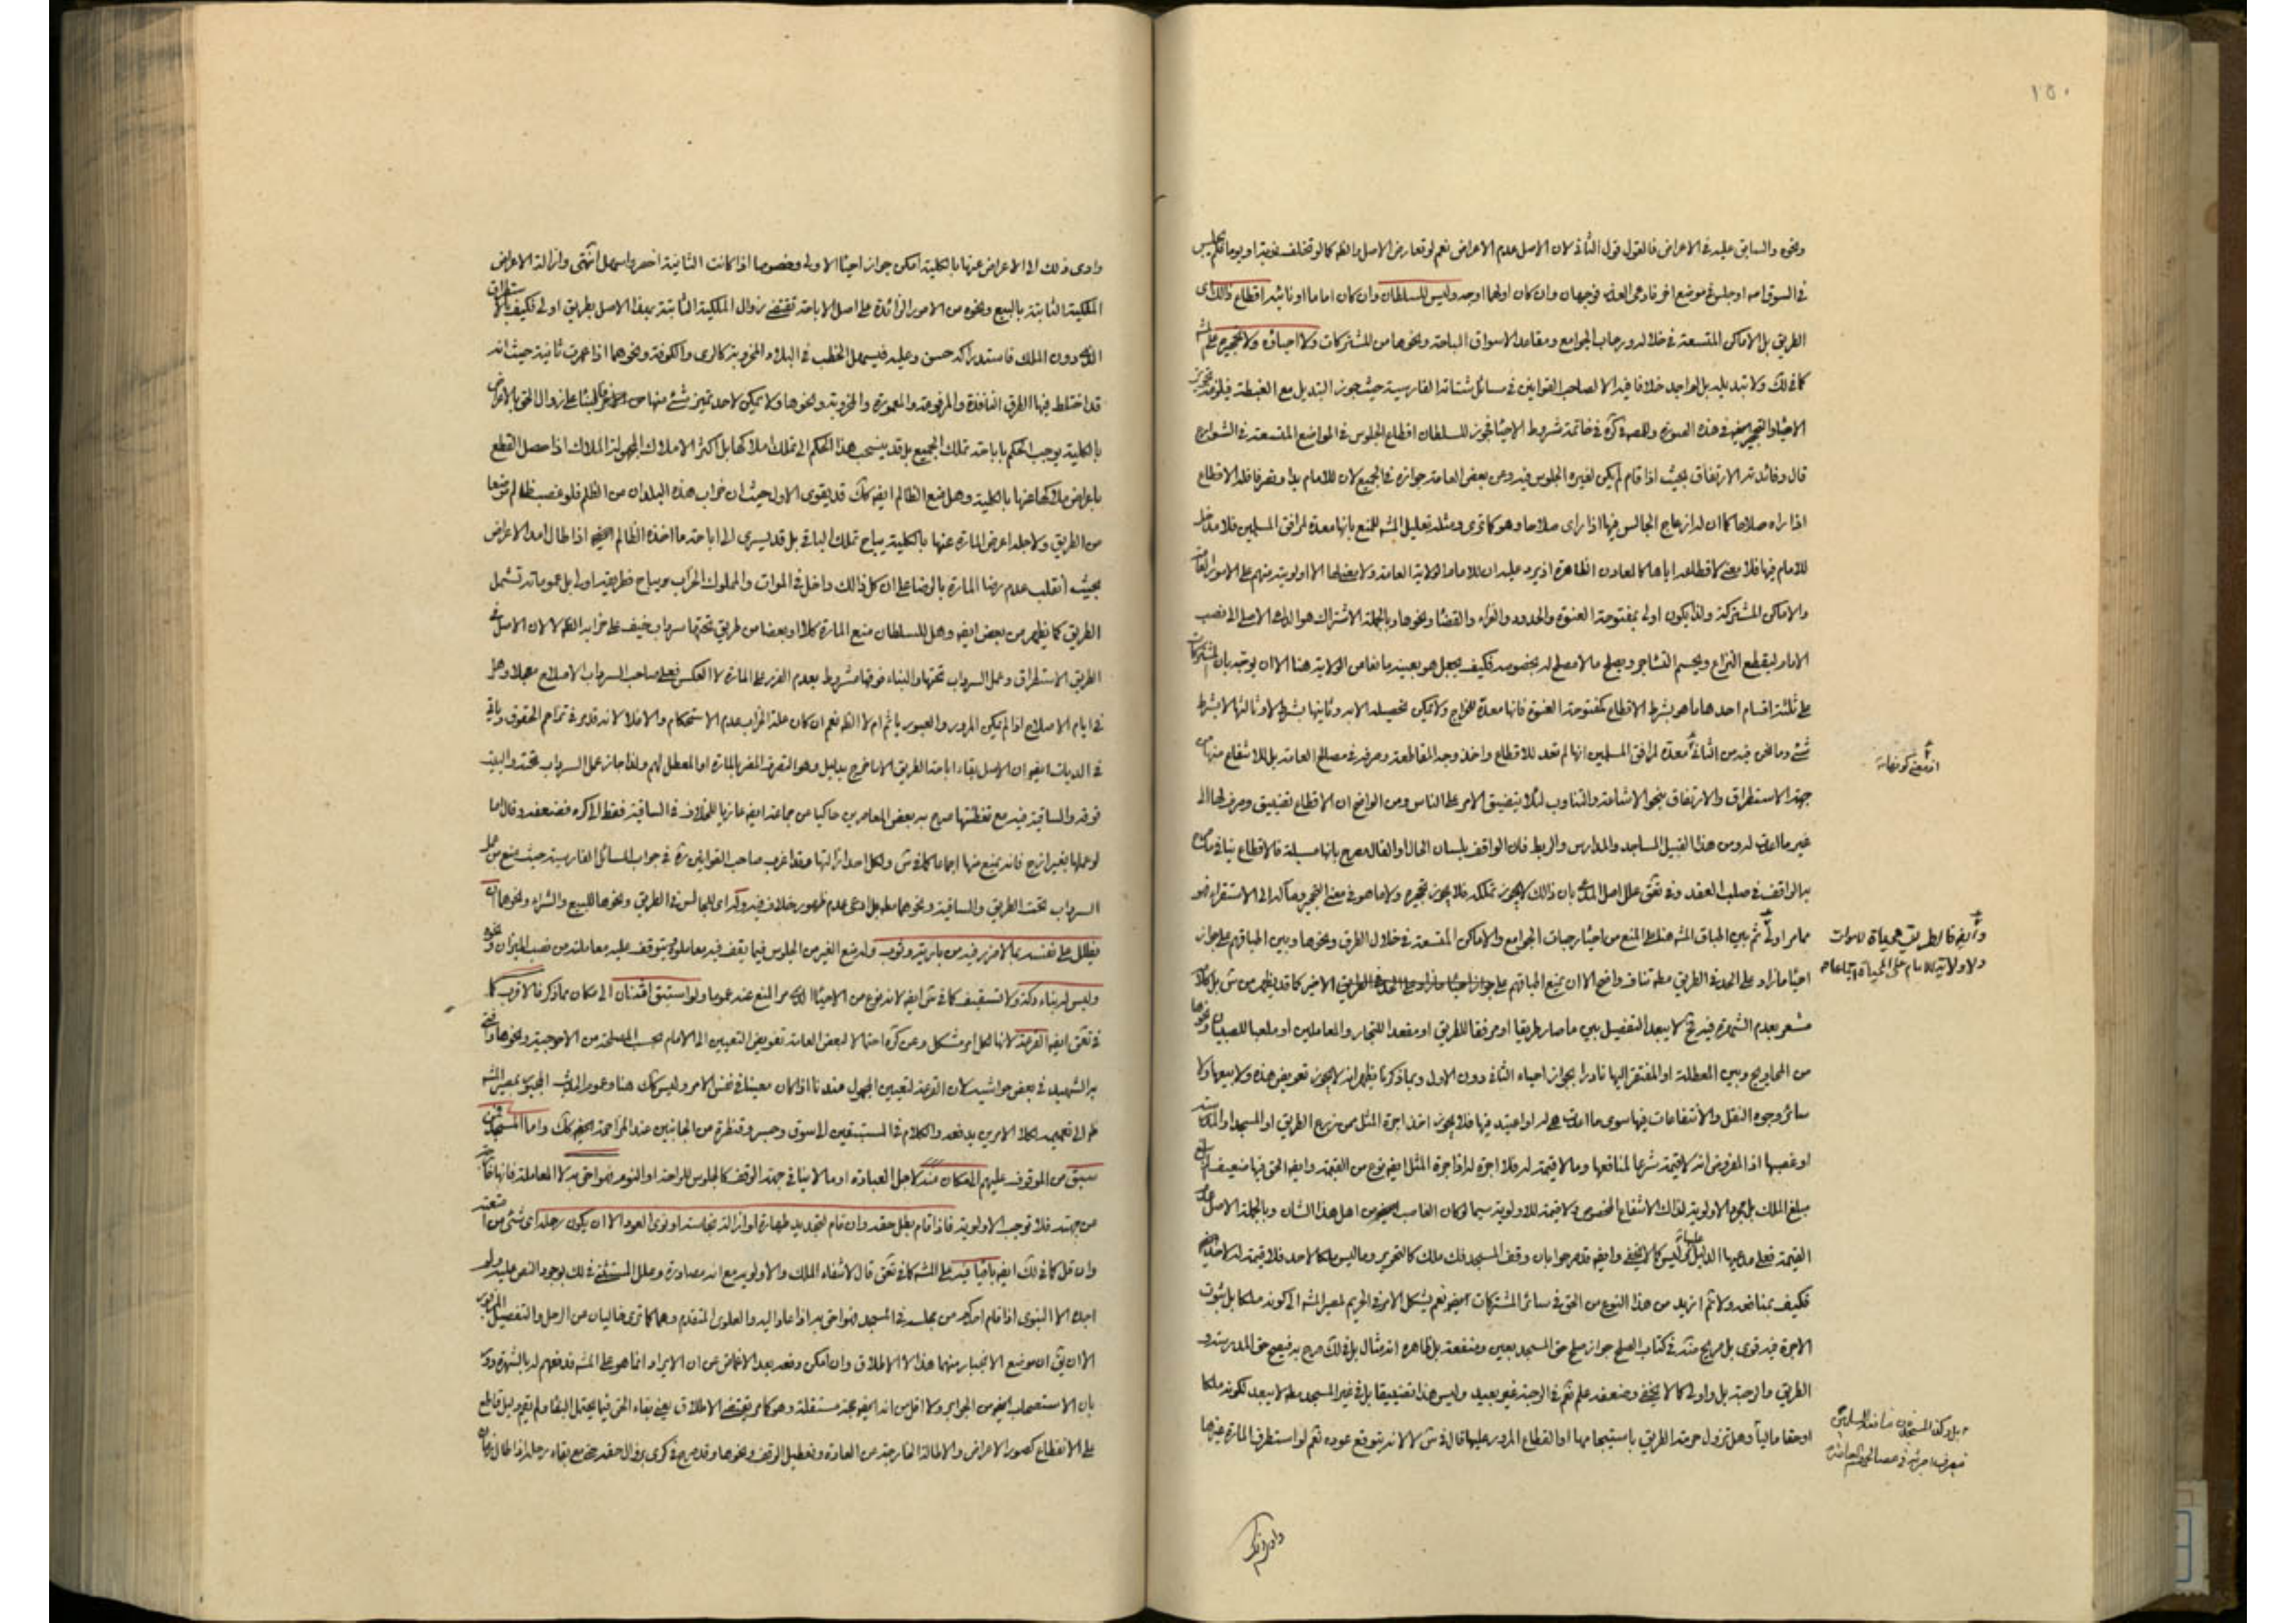 ١٥٠
ونحوه والسابق عليه في الاعراض فالقول قول الثاني لان الاصل عدم الاعراض نعم لو تعارض الاصل والظ كما لو تخلف يوما فلم يجلس
في السوق اصه او جلس في موضع اخر فادعى العذر فوجهان وان كان اولهما اوجه وليس للسلطان وان كان اماما او نائبه اقطاع ذالك اى
الطريق بل الاماكن المتسعة في خلاله ورحاب الجوامع ومقاعد الاسواق المباحة ونحوها من المشتركات ولا احياؤه ولا تحجيره على المشه
كما في لك ولا تبديله بل لم اجد خلافا فيه الا لصاحب القوانين في مسائل شتاته الفارسية حيث جوز التبديل مع الغبطة
الاحياء والتحجير في هذه الصورة وللمص في كره في خاتمة شروط الاحياء فجوز للسلطان اقطاع الجلوس في المواضع المتسعة في الشوارع
قال وفائدته الارتفاق بحيث اذا قام لم يكن لغيره الجلوس فيه وعن بعض العامة جوازه في الجميع لان للامام يدا وتصرفا فله الاقطاع
اذا راه صلاحا كما ان له ازعاج الجالس فيها اذا راى صلاحا وهو كما ترى ومثله تعليل المشه للمنع بانها معدة لمرافق المسلمين فلا مدخل
للامام فيها فلا معنى لاقطاعه اياها كالمعادن الظاهرة اذ يرد عليه ان للامام الولاية العامة ولا معنى لها الا اولويته منهم على الامور العامة
والاماكن المشتركة ولذا يكون اولى بمفتوحة العنوة والحدود والقراء والقضاء ونحوها وبالجملة الاشتراك هو الداعي الاصلي الى نصب
الامام ليقطع النزاع ويحسم التشاجر ويصلح ما لا مصلح له بخصوصه فكيف يجعل هو بعينه مانعا من الولاية هنا الا ان يوجه بان المشتركات
على ثلثة اقسام احدها ما هو بشرط الاقطاع كمفتوحة العنوة فانها معدة للخراج ولا يمكن تحصيله الا به وثانيها بشرط لا وثالثها لا بشرط
شئ وما نحن فيه من الثاني معدة لمرافق المسلمين انها لم تعد للاقطاع واخذ وجه المقاطعة وصرفه في مصالح العامة بل للانتفاع منها من
جهة الاستطراق والارتفاق بنحو الاشاعة والتناوب لئلا يتضيق الامر على الناس ومن الواضح ان الاقطاع تضييق وصرف لها الى
غير ما اعدت له ومن هذا القبيل المساجد والمدارس والربط فان الواقف بلسان الحال او القال مصرح بانها مسبلة فالاقطاع ينافي ما صرح
به الواقف في صلب العقد وفي تعق علل اصل المدعى بان ذالك لا يجوز تملكه فلا يجوز تحجيره ولا ما هو في معنى التحجير وماله الى الاستقراء فهو
مما مر اولى ثم بين اطباق المشه هنا على المنع من احياء رحاب الجوامع والاماكن المتسعة في خلال الطرق ونحوها وبين اطباقهم على جواز
احياء ما زاد على الحد في الطريق مطه تناف واضح الا ان يمنع اطباقهم على جواز احياء ما زاد على الحد في الطريق الاخير كما قد يظهر من ش بل
مشعر بعدم الشهرة فيه فح لا يبعد التفصيل بين ما صار طريقا او مرفقا للطريق او مقعدا للتجار والمعاملين او ملعبا للصبيان ونحوها
من المحاويج وبين المعطلة او المفتقر اليها نادرا بجواز احياء الثاني دون الاول وبما ذكرنا يظهر انه لا يجوز تعويض هذه ولا بيعها ولا
سائر وجوه النقل والانتفاعات فيها سوى ما اعدت هي له او اعتيد فيها فلا يجوز اخذ اجرة المثل ممن زرع الطريق او المسجد او المدرسة
او غصبها اذ المفروض انه لا قيمة شرعا لمنافعها وما لا قيمة له فلا اجرة له اذ اجرة المثل ايض نوع من القيمة وايض الحق فيها ضعيف لم
يبلغ الملك بل مجرد الاولوية لذالك الانتفاع المخصوص ولا قيمة للاولوية سيما لو كان الغاصب من اهل هذا الشان وبالجملة الاصل عدم
القيمة فعلى مدعيها الدليل ليس كما لا يخفى وايض قد صرحوا بان وقف المسجد فك ملك كالتحرير وما ليس ملكا لاحد فلا قيمة له لاخذ
فكيف بمنافعه ولا ثم ازيد من هذا النوع من الحق في سائر المشتركات نعم يشكل الامر في الحريم لمصير المشه الى كونه ملكا بل ثبوت
الاجرة فيه قوى بل صريح منه في كتاب الصلح جواز صلح حق المسجد بعين ومنفعة بل ظاهره انه مثال بل في لك صرح به فيصح حق المدرسة و
الطريق والرحبة بل واولى كما لا يخفى وضعفه علم نعم في الرحبة غير بعيد وليس هذا تضييقا بل في غير المسجد مطه لا يبعد لكونه ملكا
او حقا ماليا وهل تزول حرمة الطريق باستيجامها او انقطاع المرور عليها قال في ش لا لانه يتوقع عوده نعم لو استطرق المارة غيرها
اذ معنى كونها
وايض فالطريق محياة للموات
ولا ولاية للامام على المحياة
بل وكذا المسجد من منافعه المسلمين
فيصرف اجرته في مصالحهم العامة
وادى ذلك
وادى ذلك الى الاعراض عنها بالكلية امكن جواز احياء الاولى وخصوصا اذا كانت الثانية اخصر واسهل انتهى وازالة الاعراض
الملكية الثابتة بالبيع ونحوه من الامور الزائدة على اصل الاباحة تقتضي زوال الملكية الثابتة بهذا الاصل بطريق اولى فكيف بالاستطراق
الذى دون الملك فاستدراكه حسن وعليه فيسهل الخطب في البلاد المخروبة كالرى والكوفة ونحوهما اذا عمرت ثانية حيث انه
قد اختلط فيها الطرق النافذة والمرفوعة والمعمورة والمخروبة ونحوها ولا يمكن لاحد تميز شئ منها من الاخر فالبناء على زوال الحق بالاعراض
بالكلية يوجب الحكم باباحة تملك الجميع بل قد ينسحب هذا الحكم الى تملك املاكها بل اكثر الاملاك المجهولة الملاك اذا حصل القطع
باعراض ملاكها عنها بالكلية وهل منع الظالم ايض كك قد يقوى الاول حيث ان خراب هذه البلدان من الظلم فلو غصب ظالم موضعا
من الطريق ولاجله اعرض المارة عنها بالكلية يباح تملك الباقي بل قد يسرى الى اباحة ما اخذه الظالم ايض اذا طال امد الاعراض
بحيث انقلب عدم رضا المارة بالرضا على ان كل ذالك داخل في الموات والمملوك الخراب ويباح فطريقه اولى بل عموماته تشمل
الطريق كما يظهر من بعض ايض وهل للسلطان منع المارة كلا او بعضا من طريق تحتها سرداب خيف على خرابه الظ لا لان الاصل في
الطريق الاستطراق وعمل السرداب تحتها والبناء فوقها مشروط بعدم الضرر على المارة لا العكس فعلى صاحب السرداب الاصلاح معجلا وهل
في ايام الاصلاح اذا لم يكن المرور والعبور ياثم ام لا الظ نعم ان كان علة الخراب عدم الاستحكام والا فلا لانه قد مر في تزاحم الحقوق وياتي
في الديات ايض ان الاصل بقاء اباحة الطريق الا ما خرج بدليل وهو التصرف المضر بالمارة او المعطل لهم ولذا جاز عمل السرداب تحته والبيت
فوقه والساقية فيه مع تغطيتها صرح به بعض المعاصرين حاكيا عن جماعة ايض عازيا للخلاف في الساقية فقط الى كره فضعفه وقال اما
لو عملها بغير ازج فانه يمنع منها اجماعا كما في ش ولكل احد ازالتها وقد اغرب صاحب القوانين ره في جواب المسائل الفارسية حيث منع من عمل
السرداب تحت الطريق والساقية ونحوهما مطه بل ادعى عدم ظهور خلاف فيه وله اى للجالس في الطريق ونحوها للبيع والشراء ونحوهما ان
يظلل على نفسه بما لا ضرر فيه من بارية وثوب وله منع الغير من الجلوس فيما يقف فيه معاملوه يتوقف عليه معاملته من نصب الميزان ونحوه
وليس له بناء دكة ولا تسقيف كما في ش ايض لانه نوع من الاحياء الذى مر المنع عنه عموما ولو استبق اثنان الى مكان مما ذكر فالاقرب كما
في تعق ايض القرعة لانها لكل امر مشكل وعن كره احتمالا لبعض العامة تفويض التعيين الى الامام بحسب المصلحة من الاحوجية ونحوها وافتى
به الشهيد في بعض حواشيه لان القرعة لتعيين المجهول عندنا اذا كان معينا في نفس الامر وليس كك هنا وعموم الحديث المجبور بمصير المشه
ظ الى تعميمه لكلا الامرين يدفعه والكلام في المستبقين الى سوق وجسر وقنطرة من الجانبين عند المزاحمة كك واما المسجد فمن
سبق من الموقوف عليهم الى مكان منه لاجل العبادة او ما لا ينافي جهة الوقف كالجلوس للراحة او النوم فهو احق به لا المعاملة فانها
من جهته فلا توجب الاولوية فاذا قام بطل حقه وان قام لتجديد طهارة او ازالة نجاسة او نوى العود الا ان يكون رحله اى شئ من امتعته
وان قل كما في لك ايض باقيا فيه على المشه كما في تعق قال لانتفاء الملك والاولوية مع انه مصادرة وعلل المستثنى في لك بوجود النص عليه ولم
اجده الا النبوى اذا قام احدكم من مجلسه في المسجد فهو احق به اذا عاد اليه والعلوى المتقدم وهما كما ترى خاليان من الرحل والتفصيل
الا ان يق ان موضع الانجبار منهما هذا لا الاطلاق وان امكن دفعه بعد الاغماض عن ان الايراد انما هو على المشه قد فهم له بالشهرة
بان الاستصحاب ايض من الجوابر ولا اقل من انه ايض حجة مستقلة وهو كما مر يقتضي الاطلاق يعني بقاء الحق فيما يحتمل البقاء ولم يقم دليل قاطع
على الانقطاع كصور الاعراض والاطالة الخارجة عن العادة وتعطيل الوقف ونحوها وقد صرح في كرى بزوال حقه ح مع بقاء رحله اذا طال زمان